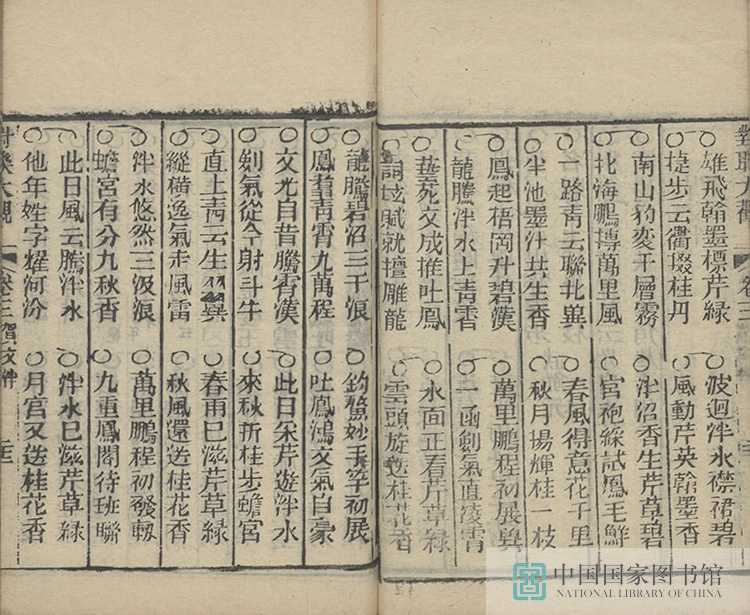 對聯大觀
卷三
雄飛翰墨標芹緑　波迴泮水襟裾碧
捷步云衢掇桂丹　風動芹英翰墨香
南山豹变千層霧　泮沼香生芹草碧
北海鵬摶萬里風　宮袍綵試鳳毛鮮
一路靑云聯北異　春風得意花千里
半池墨汁共生香　秋月揚輝桂一枝
鳳起梧岡升碧漢　萬里鵬程初展異
龍騰泮水上青霄　一函劍氣直凌霄
藝苑文成推吐鳳　水面正看芹草緑
詞垓賦就擅雕龍　雲頭旋送桂花香
龍騰碧沼三千浪　釣鰲妙手竿初展
鳳看靑霄九萬程　吐鳳鴻文氣自豪
文光自昔騰霄漢　此日采芹遊泮水
劍氣從今射斗牛　來秋折桂步蟾宮
直上靑云生羽異　春雨已滋芹草緑
縱橫逸氣走風雷　秋風還送桂花香
泮水悠然三汲浪　萬里鵬程初發軔
蟾宮有分九秋香　九重鳳閣待班聯
此日風云騰泮水　泮水已滋芹草緑
他年姓字耀河汾　月宮又送桂花香
大觀　卷三　賀
中国国家图书馆
NATIONAL LIBRARY OF CHINA